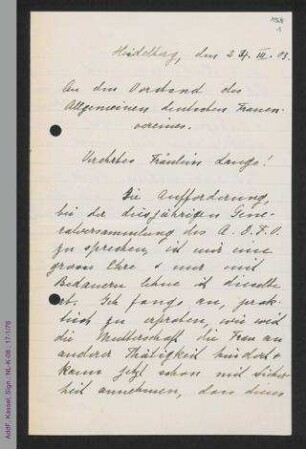 Heidelberg, den 24. III. 03.
An den Vorstand des
Allgemeinen deutschen Frauen-
vereines.
Verehrtes Fräulein Lange!
Die Aufforderung,
bei der diesjährigen Gene-
ralversammlung des A. D. F. V.
zu sprechen, ist mir eine
grosse Ehre & nur mit
Bedauern lehne ich dieselbe
ab. Ich fange an, prak-
tisch zu erproben, wie weit
die Mutterschaft die Frau an
anderer Thätigkeit hindert &
kann jetzt schon mit Sicher-
heit annehmen, dass dieses
AddF, Kassel, Sign. NL-K-08 ; 17-1/76